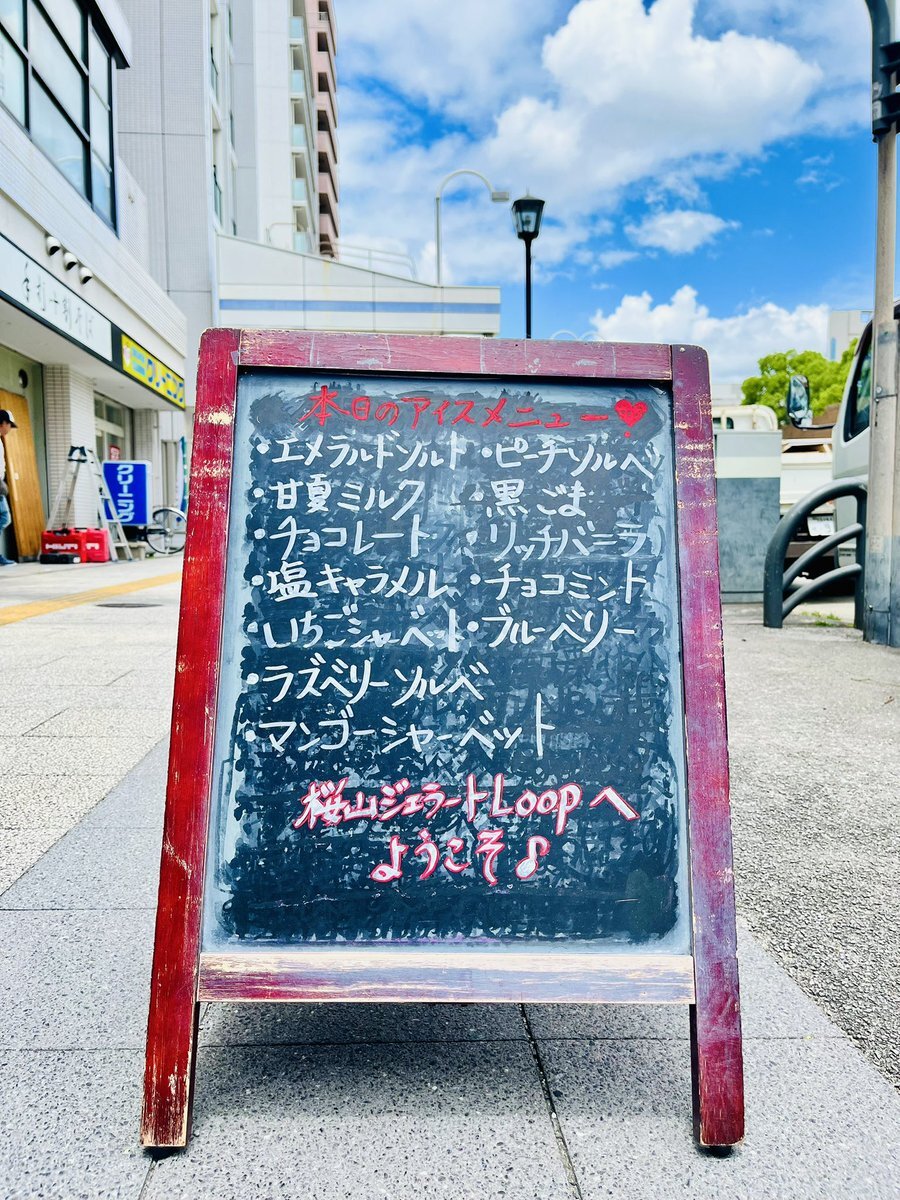 本日のアイスメニュー♥
・エメラルドソルト
・甘夏ミルク
・チョコレート
・塩キャラメル
・いちごシャーベット
・ラズベリーソルベ
・マンゴーシャーベット
・ピーチソルベ
・黒ごま
・リッチバニラ
・チョコミント
・ブルーベリー
桜山ジェラートLoopへ
ようこそ♪
手打十割そば
クリーニング
HILTI